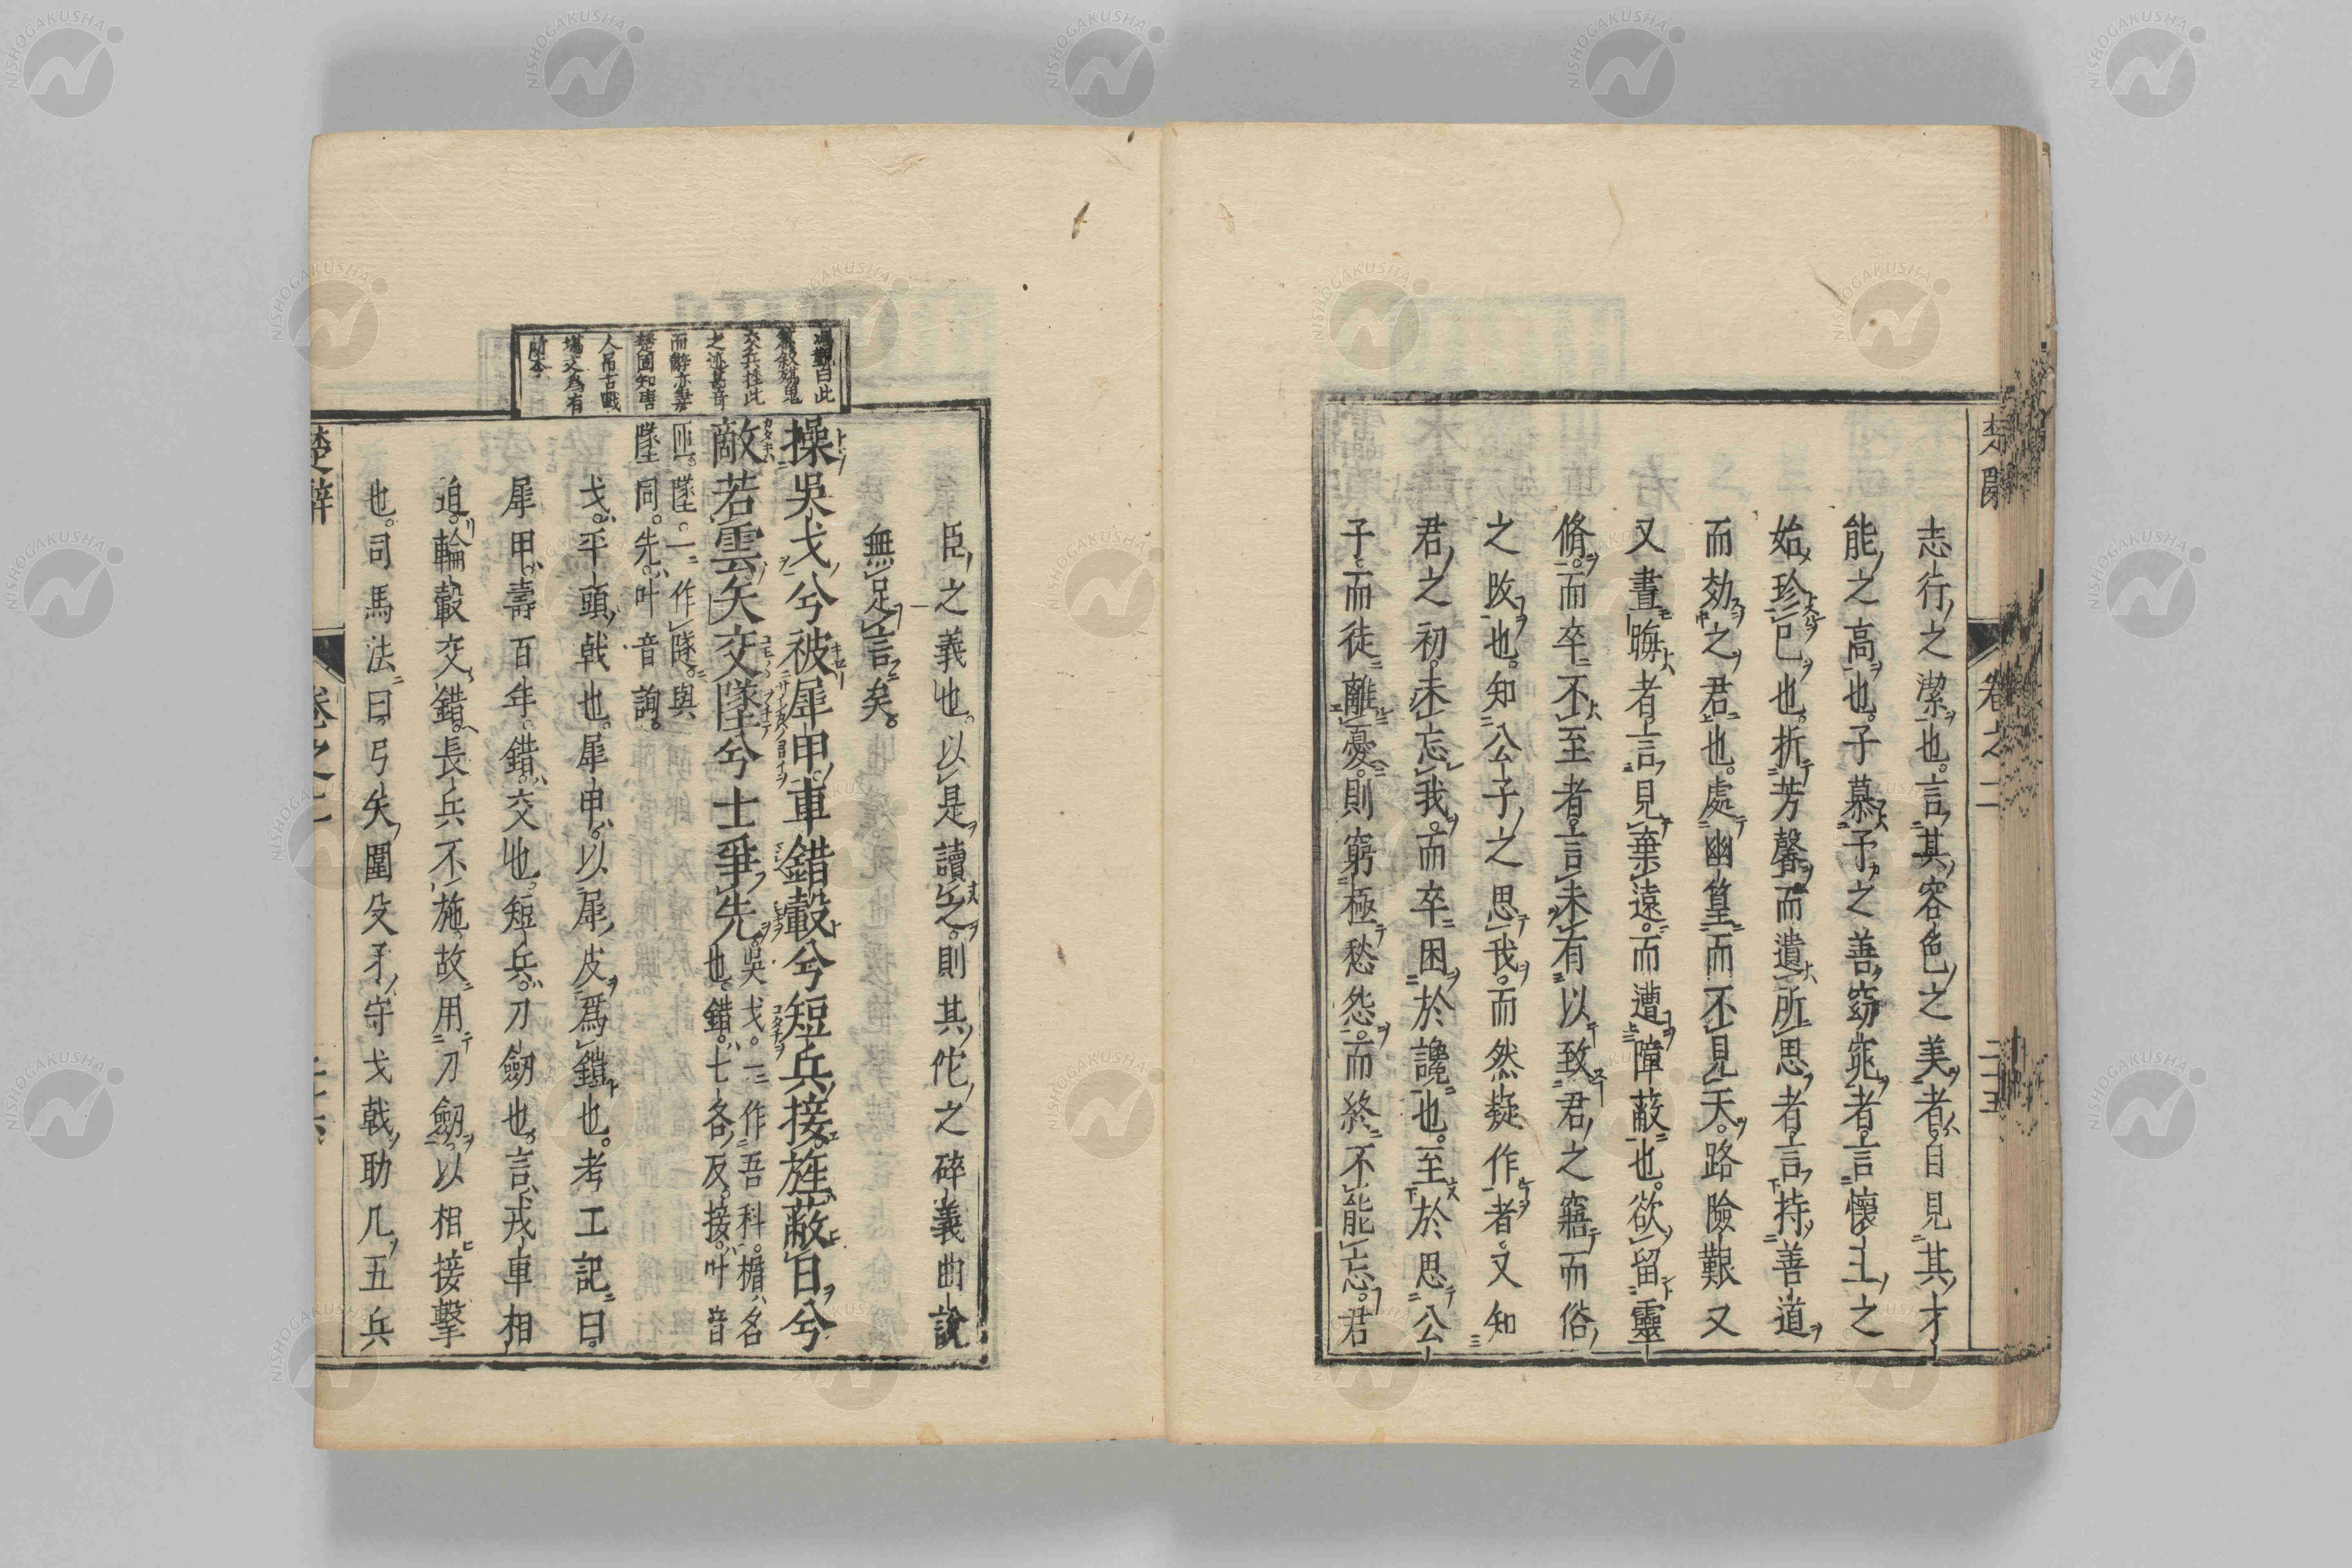 楚辭 卷之二 二十五
志行之潔也。言其容色之美者。自見其才
能之高也。子慕予之善窈窕者。言懷王之
始珍己也。折芳馨而遺所思者。言持善道
而効之君也。處幽篁而不見天。路險艱又
又晝晦者。言見棄遠。而遭障蔽也。欲留靈
脩。而卒不至者。言未有以致君之寤而俗
之改也。知公子之思我。而然疑作者。又知
君之初未忘我。而卒困於讒也。至於思公
子而徒離憂。則窮極愁怨。而終不能忘君
臣之義也。以是讀之。則其佗之碎義曲說
無足言矣。
操吳戈兮被犀甲。車錯轂兮短兵接。旌蔽日兮
敵若雲。矢交墜兮士爭先。吳戈。一作吾科。楯名
也。錯。七各反。接。叶音
匝。墜。一作隊。與
墜同。先。叶音詢。
戈。平頭戟也。犀甲。以犀皮爲鎧也。考工記曰。
犀甲。壽百年。錯。交也。短兵。刀劒也。言戎車相
迫。輪轂交錯。長兵不施。故用刀劒。以相接擊
也。司馬法曰。弓矢圍殳矛。守戈戟助。凡五兵
馮覲曰此
篇敘殤鬼
交兵挫北
之迹甚奇
而辭亦凄
楚固知唐
人吊古戰
場文為有
所本
楚辭 卷之二